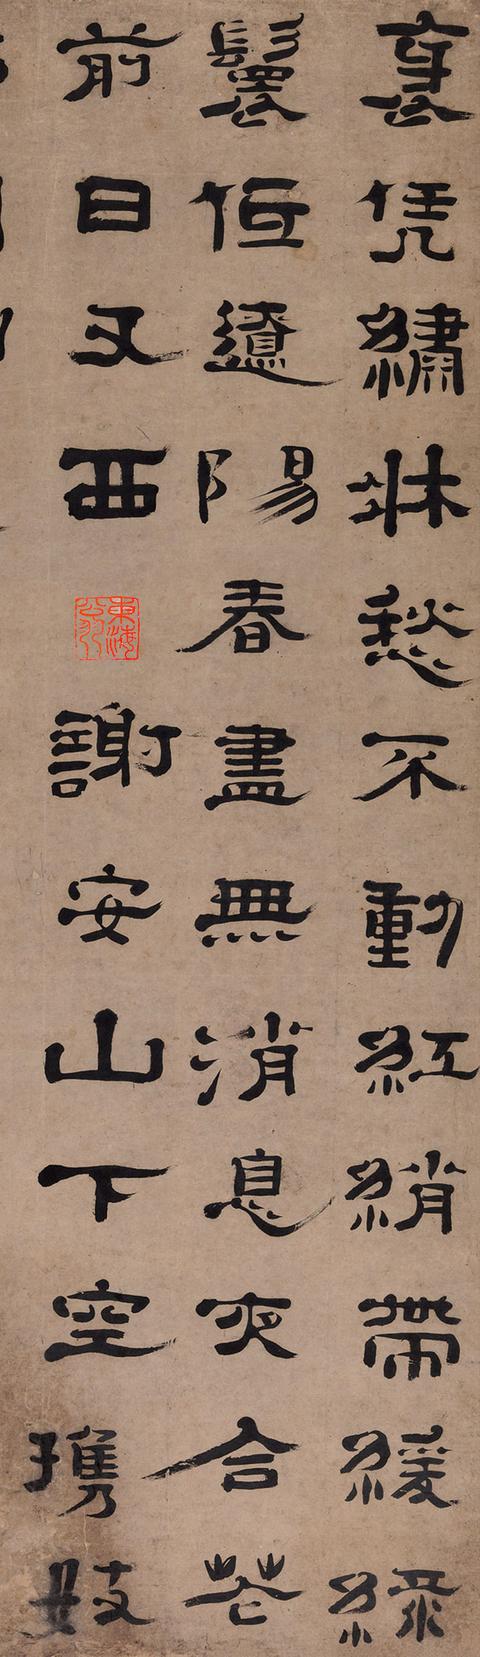 凭繡牀愁不動紅綃帶緩綠
鬟低遼陽春盡無消息夜合花
前日又西 東海翁 謝安山下空攜妓